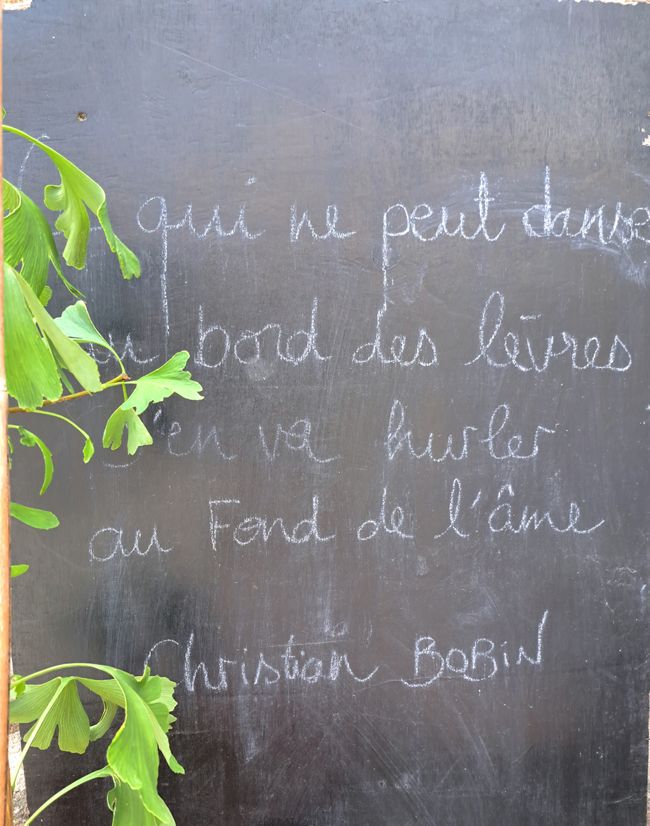 qui ne peut danser
au bord des lèvres
s'en va hurler
au Fond de l'âme
Christian BOBIN